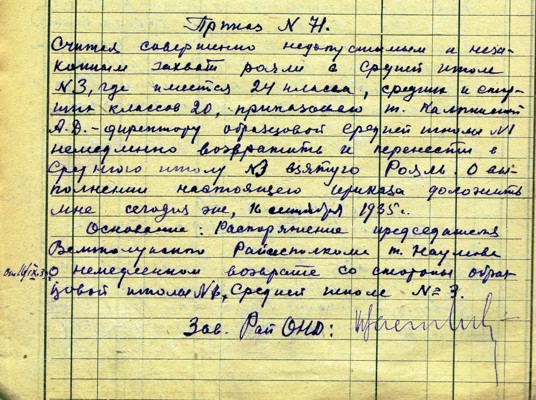 Приказ N 71.
Считая совершенно недопустимым и неза-
конным захват рояли в Средней школе
N3, где имеется 24 класса, средних и стар-
ших классов 20, приказываю т.
А.Д. - директору образцовой средней школы N1
немедленно возвратить и перенести в
Среднюю школу N3 взятую Рояль. О вы-
полнении настоящего приказа доложить
мне сегодня же, 16 сентября 1935 г.
Основание: Распоряжение председателя
Великолукского Райисполкома т. Наумова
о немедленном возврате со стороны образ-
цовой школы N1, Средней школе N 3.
Зав. Рай ОНО: